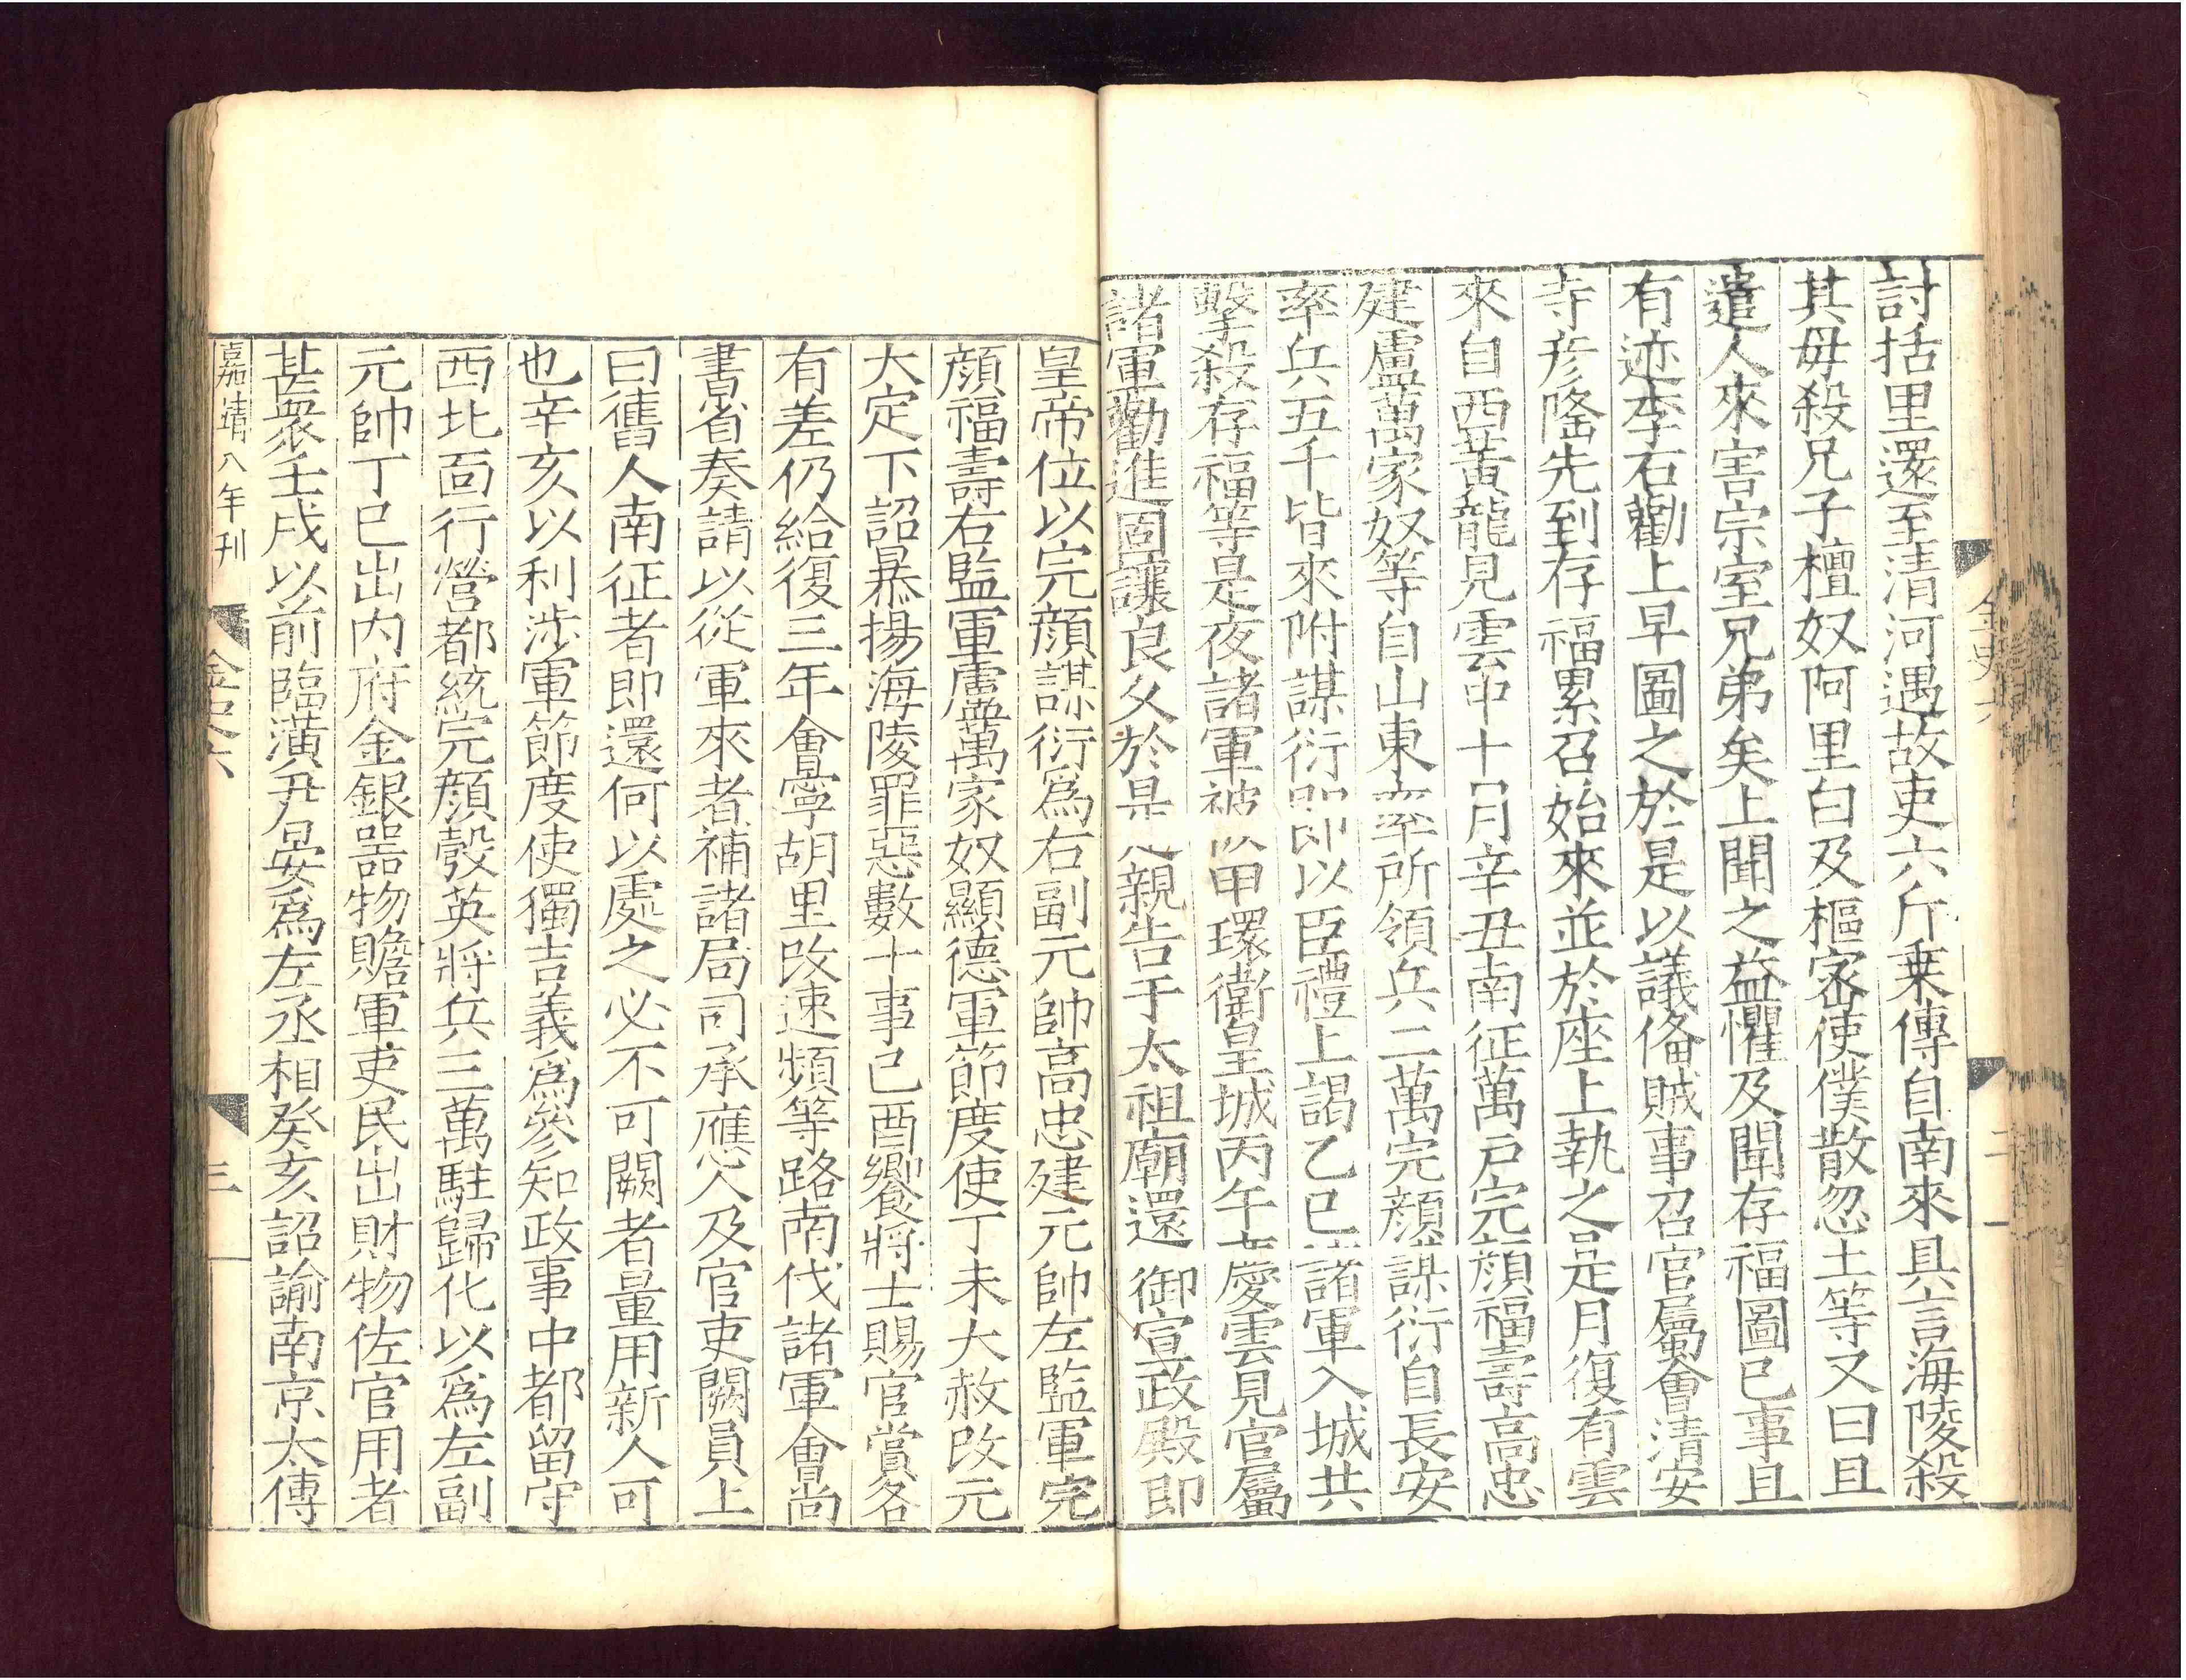 討括里還至清河遇故吏六斤乗傳自南來具言海陵殺
其母殺兄子檀奴阿里白及樞宻使僕散忽土等又曰且
遣人來害宗室兄弟矣上聞之益懼及聞存福圖已事且
有迹李石勸上早圖之於是以議俻賊事召官屬會清安
寺彦隆先到存福累召始來並於座上執之是月復有雲
來自西黃龍見雲中十月辛丑南征萬戸完顔福壽高忠
建盧萬家奴等自山東率所領兵二萬完顔謀衍自長安
率兵五千皆來附謀衍即以臣禮上謁乙巳諸軍入城共
擊殺存福等是夜諸軍被甲環衛皇城丙午慶雲見官屬
諸軍勸進固讓良久於是親告于太祖廟還御宣政殿即
皇帝位以完顔謀衍為右副元帥高忠建元帥左監軍完
顔福壽右監軍盧萬家奴顯德軍節度使丁未大赦改元
大定下詔暴揚海陵罪惡數十事己酉饗將士賜官賞各
有差仍給復三年會寧胡里改速頻等路南伐諸軍會尚
書省奏請以從軍來者補諸局司承應人及官吏闕員上
曰舊人南征者即還何以處之必不可闕者量用新人可
也辛亥以利涉軍節度使獨吉義為參知政事中都留守
西北面行營都統完顔彀英將兵三萬駐歸化以為左副
元帥丁巳出内府金銀器物贍軍吏民出財物佐官用者
甚衆壬戌以前臨潢尹晏為左丞相癸亥詔諭南京太傅
嘉靖八年刊
金史六
三